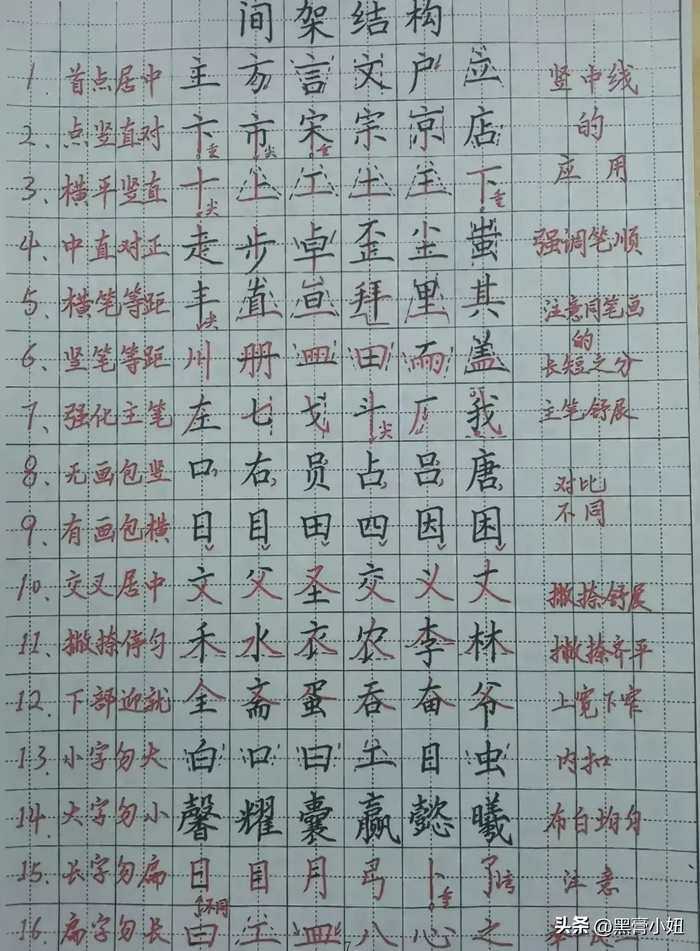 间架结构
1. 首点居中 主 方 言 文 户 应 竖中线
2、点竖直对 卞 市 宋 宗 京 店 的
垂 尖 垂
应用
3、横平竖直 十 上 工 土 王 下
尖 垂
4、中直对正 走 步 卓 歪 尘 蚩 强调笔顺
5、横笔等距 丰 直 亘 拜 里 其 注意同笔画
尖
的
6、竖笔等距 州 册 皿 田 雨 盖 长短之分
7、强化主笔 左 七 戈 斗 厂 我 主笔舒展
尖
8、无画包竖 口 右 员 占 吕 唐 对比
9、有画包横 日 目 田 四 因 困 不同
10、交叉居中 文 父 圣 交 义 丈 撇捺舒展
11、撇捺停匀 禾 水 衣 农 李 林 撇捺齐平
12、下部迎就 全 斋 蛋 吞 奋 爷 上宽下窄
13、小字勿大 白 口 曰 工 目 虫 内扣
14、大字勿小 馨 耀 囊 赢 懿 曦 布白均匀
15、长字勿扁 日 目 月 弓 卜 了 注意
不同 垂
16、扁字勿长 曰 工 皿 八 心 之
头条 @黑膏小妞